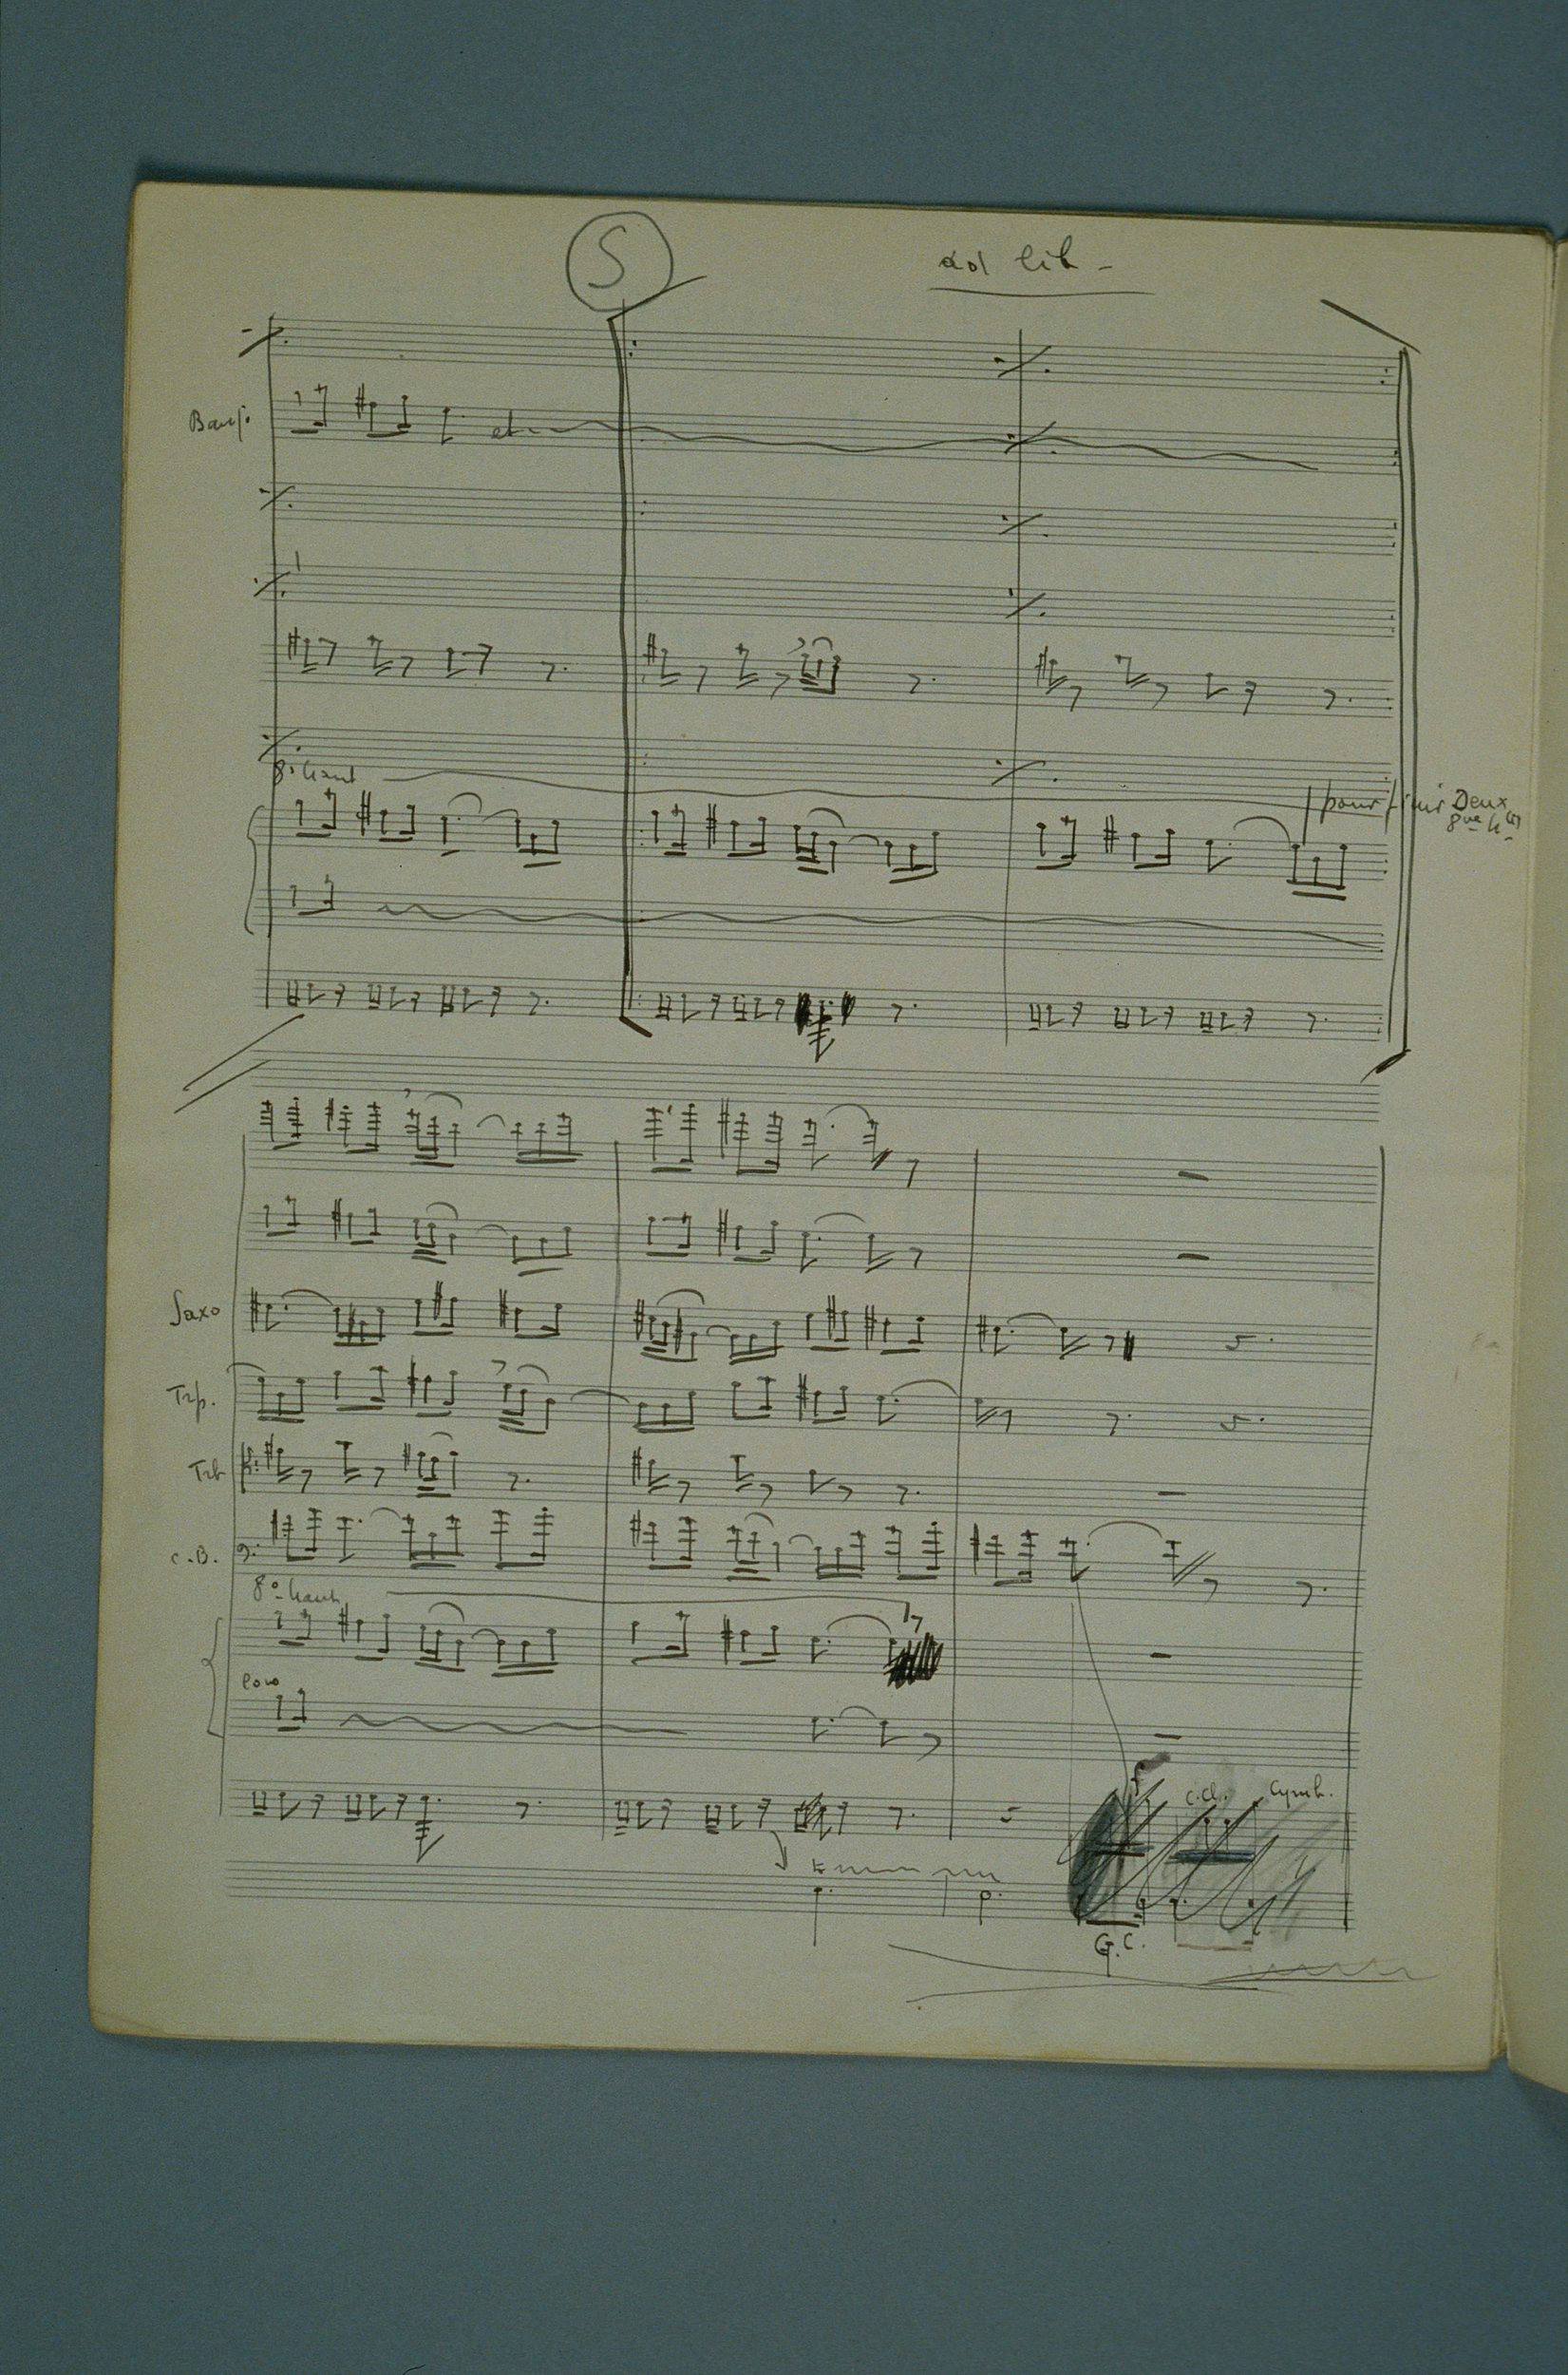 S
ad lib -
Banj.
etc
8ª haut
pour finir Deux
Saxo
Trp.
Trb
C.B.
8ª haut
loco
C.Cl. Cymb.
G.C.